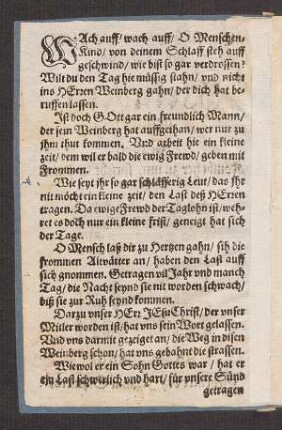 WAch auff/ wach auff/ O Menschen-
Kind/ von deinem Schlaff steh auff
geschwind/ wie bist so gar verdrossen?
Wilt du den Tag hie müssig stahn/ vnd nicht
ins HErren Weinberg gahn/ der dich hat be-
ruffen lassen.
Ist doch GOtt gar ein freundlich Mann/
der sein Weinberg hat auffgethan/ wer nur zu
jhm thut kommen. Vnd arbeit hie ein kleine
zeit/ dem wil er bald die ewig Frewd/ geben mit
Frommen.
Wie seyt jhr so gar schläfferig Leut/ das Jhr
nit möcht ein kleine zeit/ den Last deß HErren
tragen. Da ewige Frewd der Taglohn ist/ weh-
ret es doch nur ein kleine frist/ geneigt hat sich
der Tage.
O Mensch laß dir zu Hertzen gahn/ sih die
frommen Altvätter an/ haben den Last auff
sich gnommen. Getragen vil Jahr vnd manch
Tag/ die Nacht seynd sie nit worden schwach/
biß sie zur Ruh seynd kommen.
Darzu vnser HErr JEsu Christ/ der vnser
Mitler worden ist/ hat vns sein Wort gelassen.
Vnd vns darmit gezeiget an/ die Weg in disen
Weinberg schon/ hat vns gebahnt die strassen.
Wiewol er ein Sohn Gottes war/ hat er
ein Last schwerlich vnd hart/ für vnsere Sünd
getragen